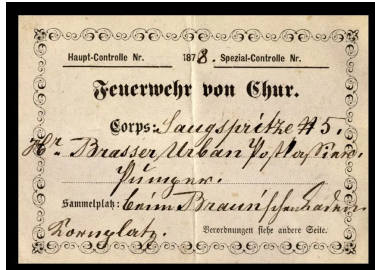 Haupt-Controlle Nr. 1878. Spezial-Controlle Nr.
Feuerwehr von Chur.
Corps: Saugspritze # 5.
Hr. Brasser Urban Postkassier.
Pumper.
Sammelplatz: beim Braun'schen Laden
Kornplatz.
Verordnungen siehe andere Seite.